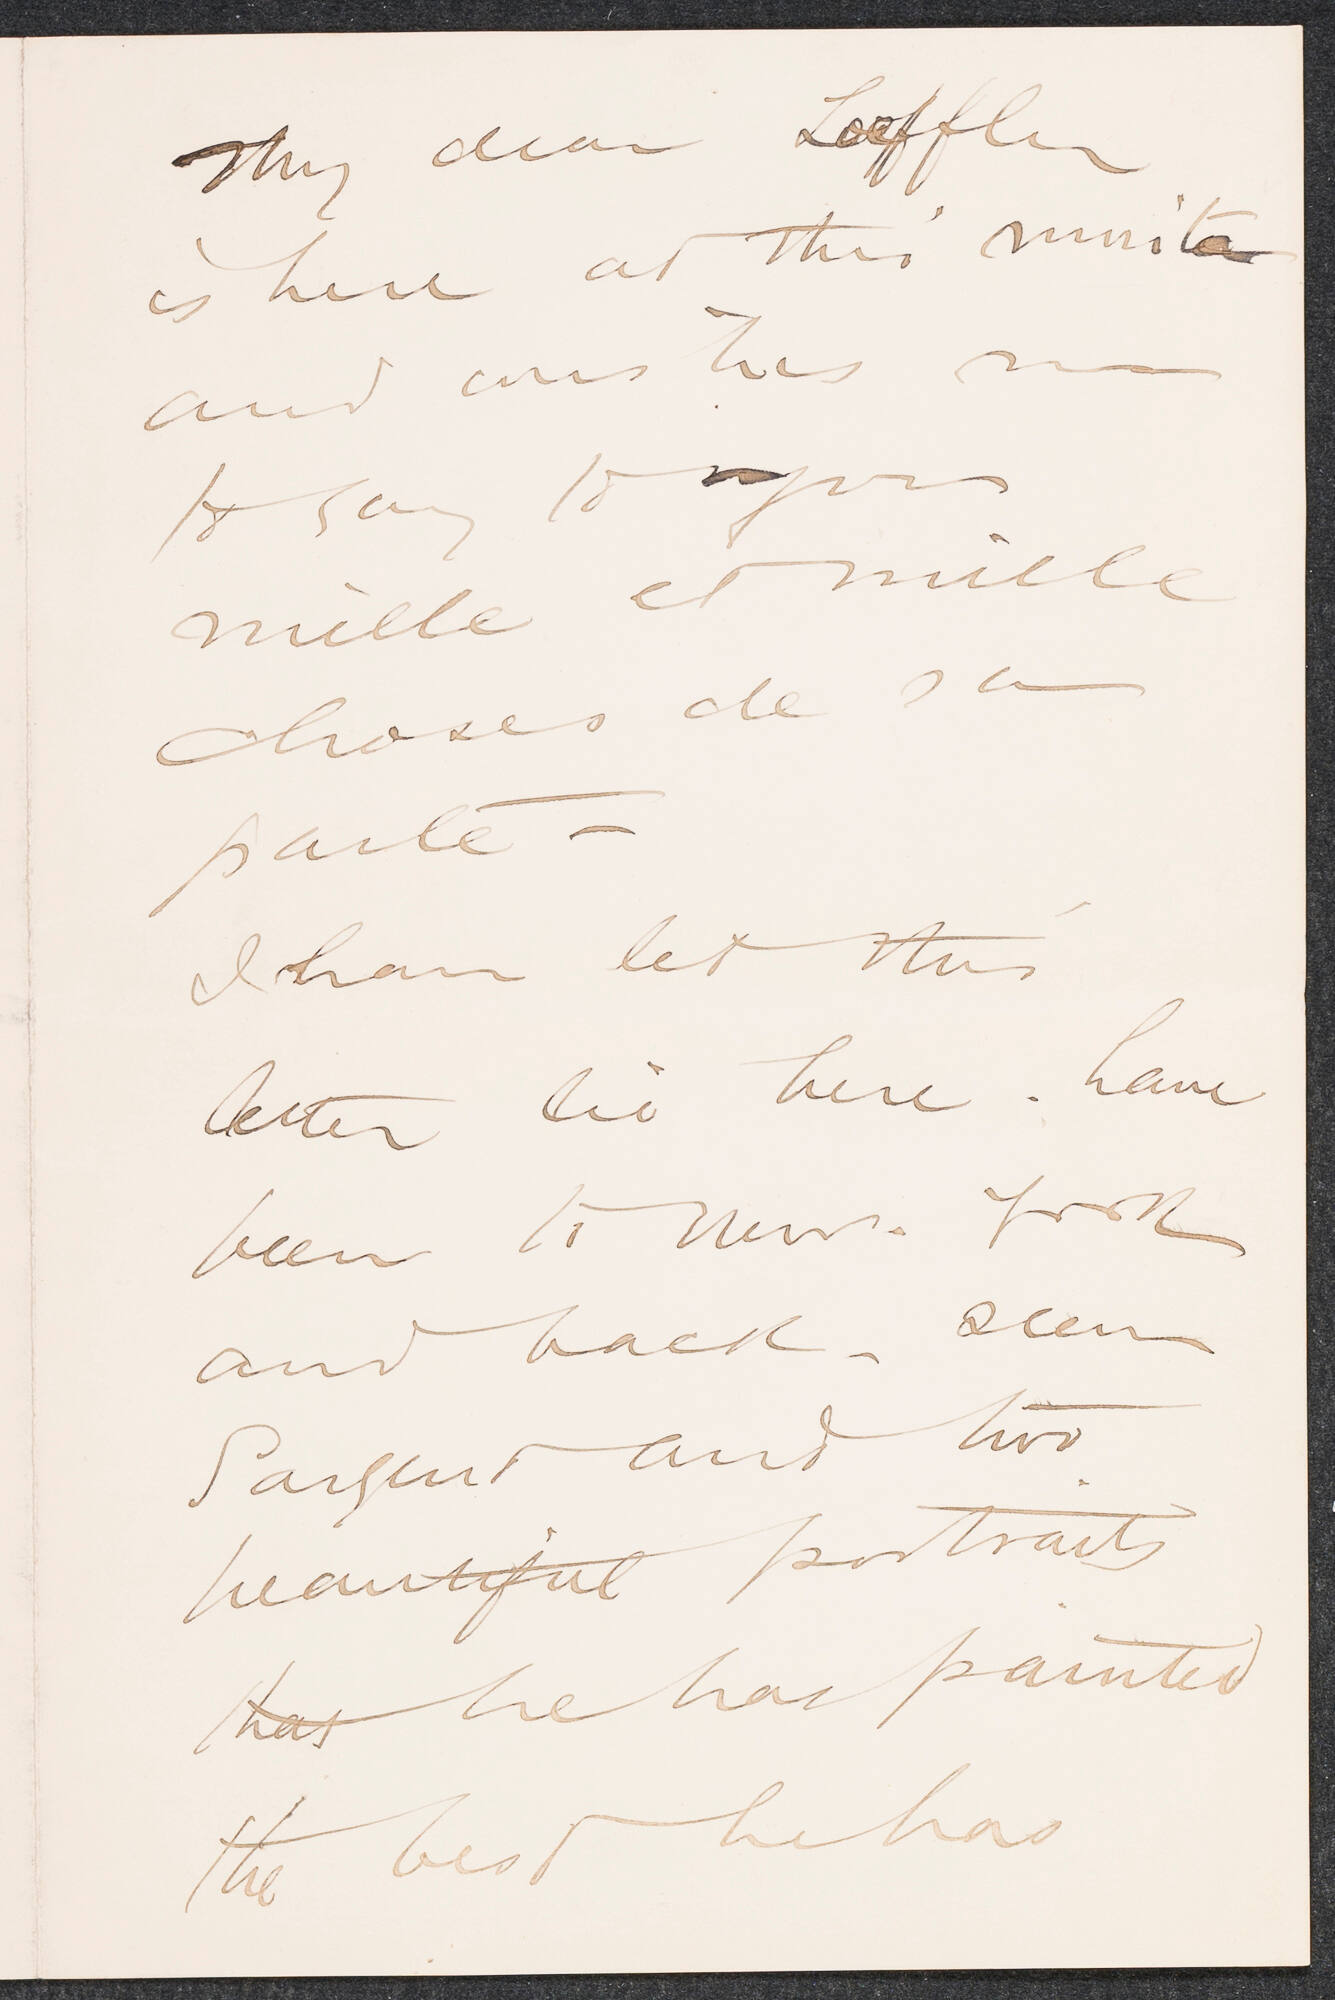 My dear Loeffler
is here at this minute
and wishes me
to say to you
mille et mille
choses de sa
parte -
I have let this
letter lie here. have
been to New. York
and back - seen
Sargent and two
beautiful portraits
that he has painted
the best he has